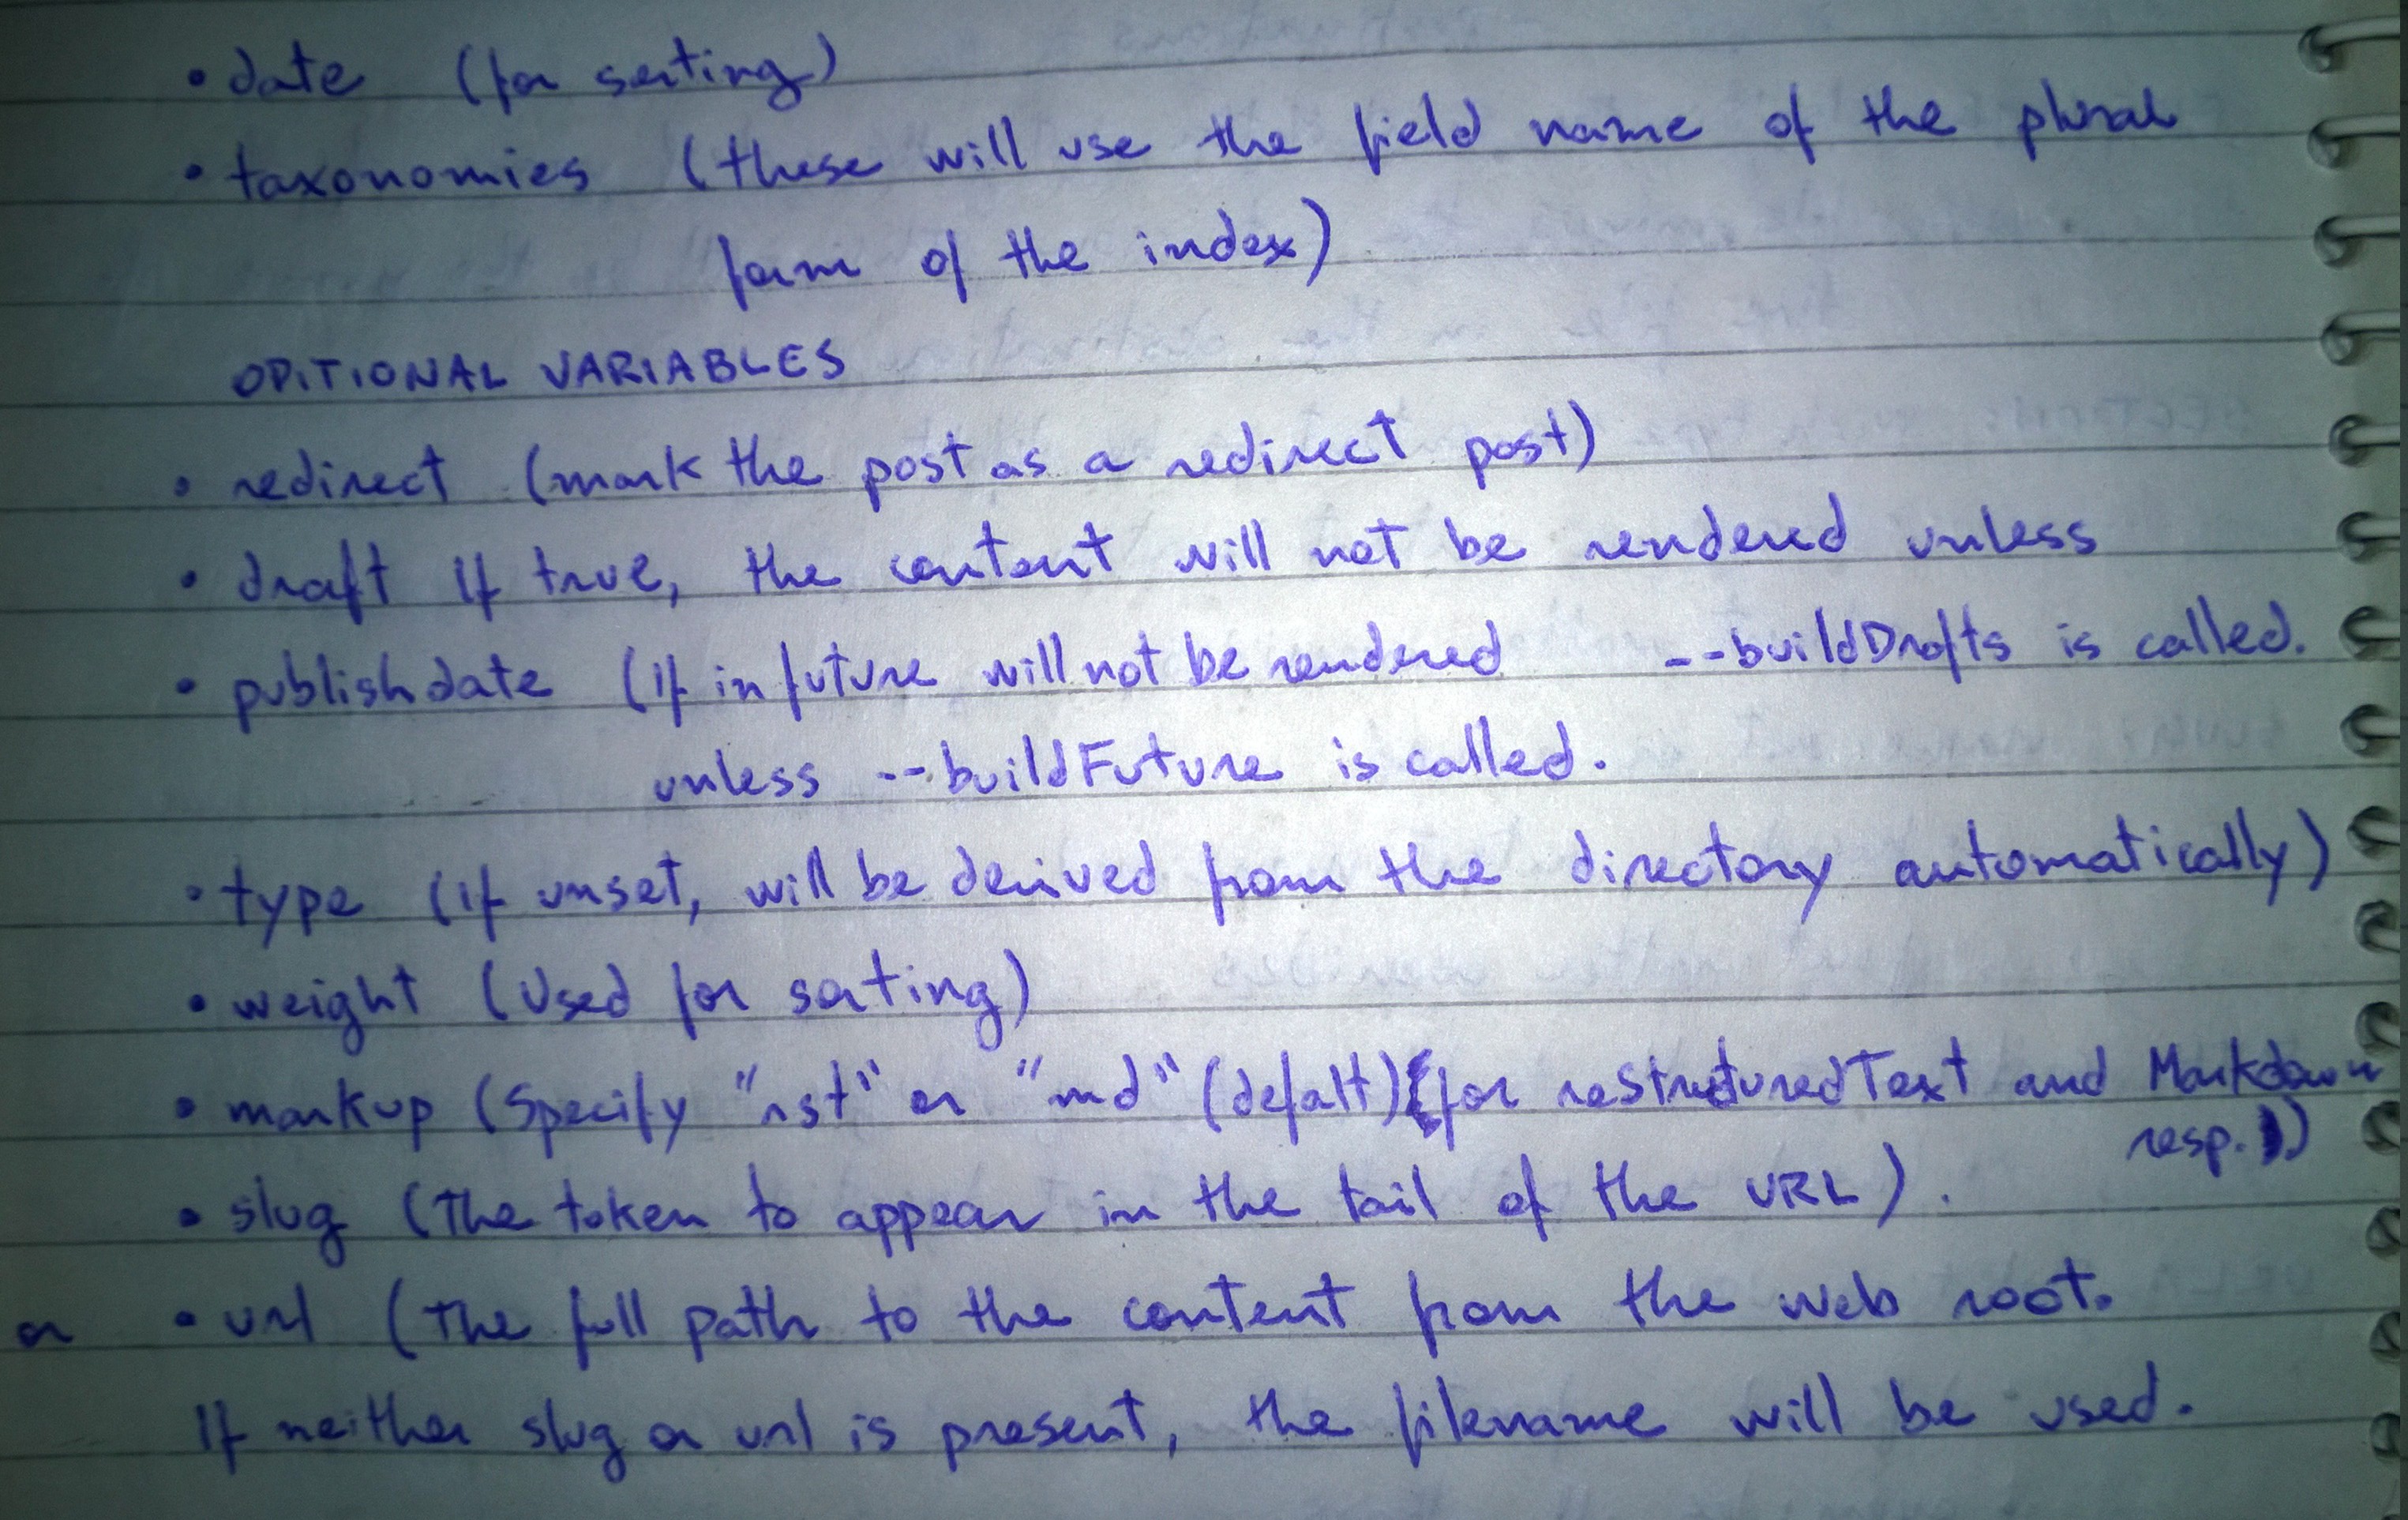 • date (for sorting)
• taxonomies (these will use the field name of the plural
form of the index)
OPITIONAL VARIABLES
• redirect (mark the post as a redirect post)
• draft If true, the content will not be rendered unless
--buildDrafts is called.
• publishdate (If in future will not be rendered
unless --buildFuture is called.
• type (If unset, will be derived from the directory automatically)
• weight (Used for sorting)
• markup (Specify "rst" or "md" (defalt) (for restructuredText and Markdown
resp.))
• slug (The token to appear in the tail of the URL).
or • url (The full path to the content from the web root.
If neither slug or url is present, the filename will be used.